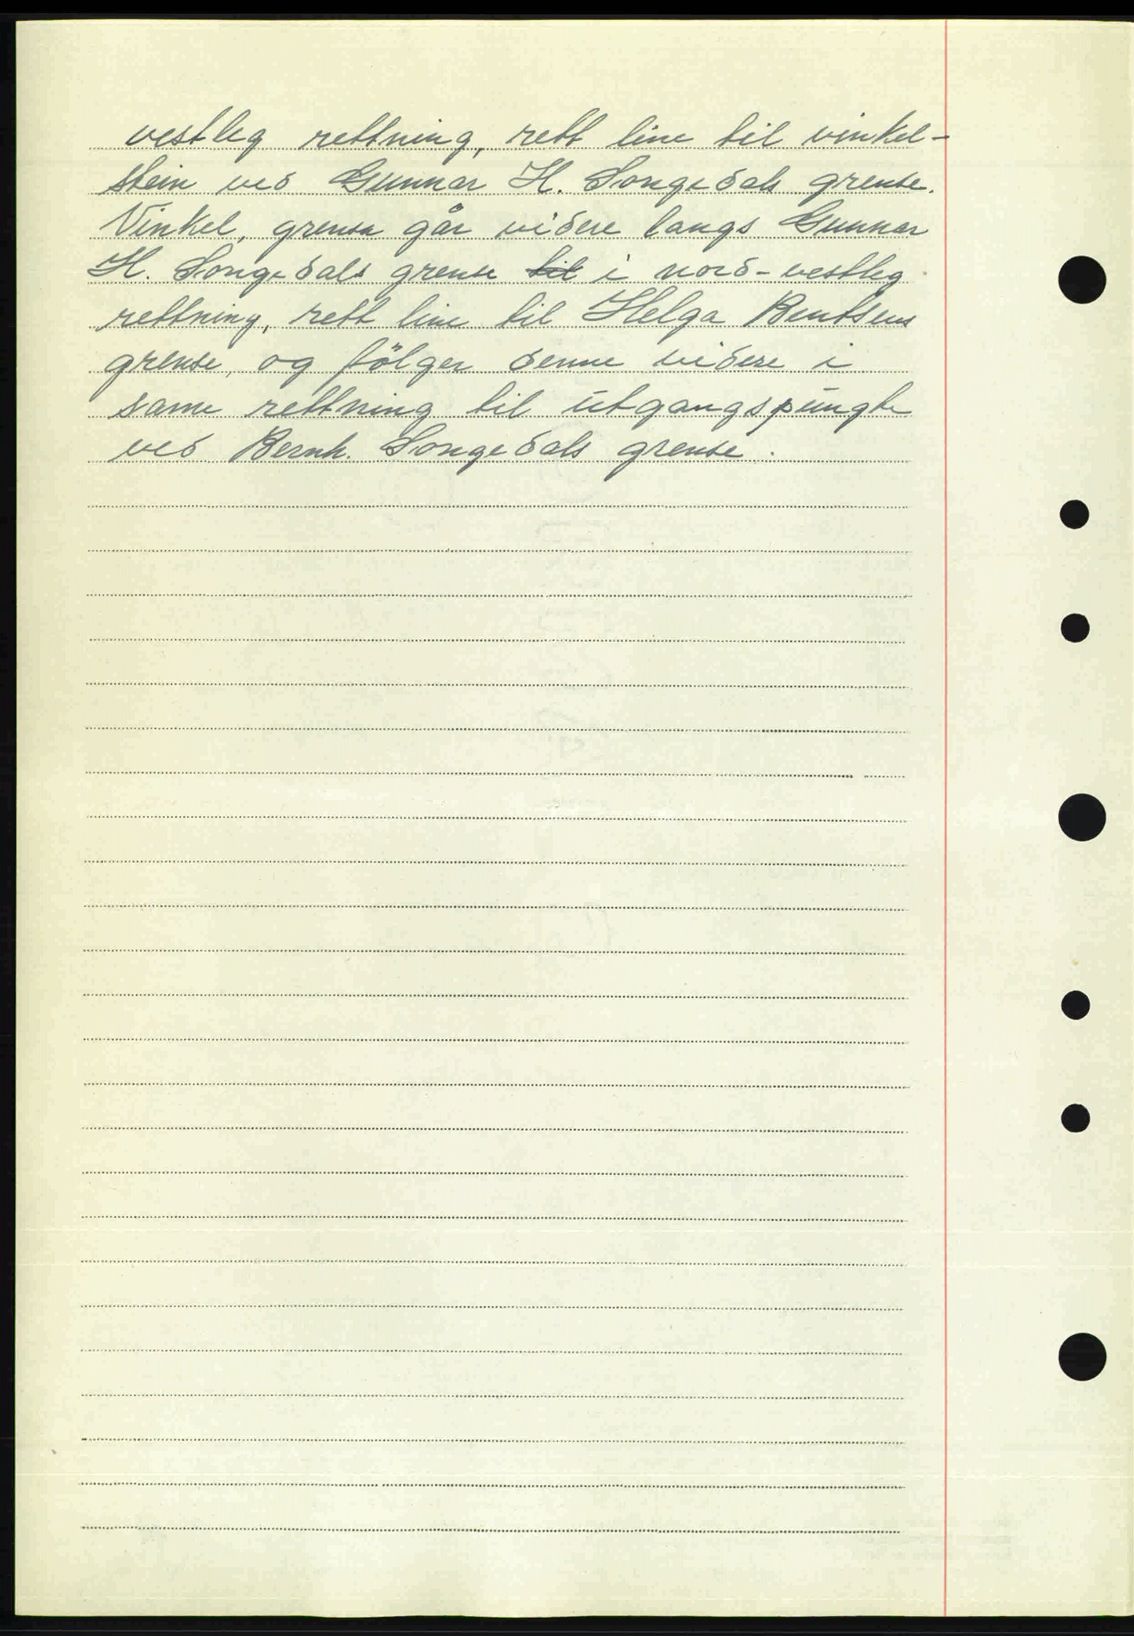 vestleg rettning, rett line til vinkel-
stein ved Gunnar H. Songedals grense.
Vinkel, grensa går videre langs Gunnar
H. Songedals grense til i nord-vestleg
rettning, rett line til Helga Bentsens
grense, og fölger denne videre i
same rettning til utgangspungte
ved Bernh. Songedals grense.